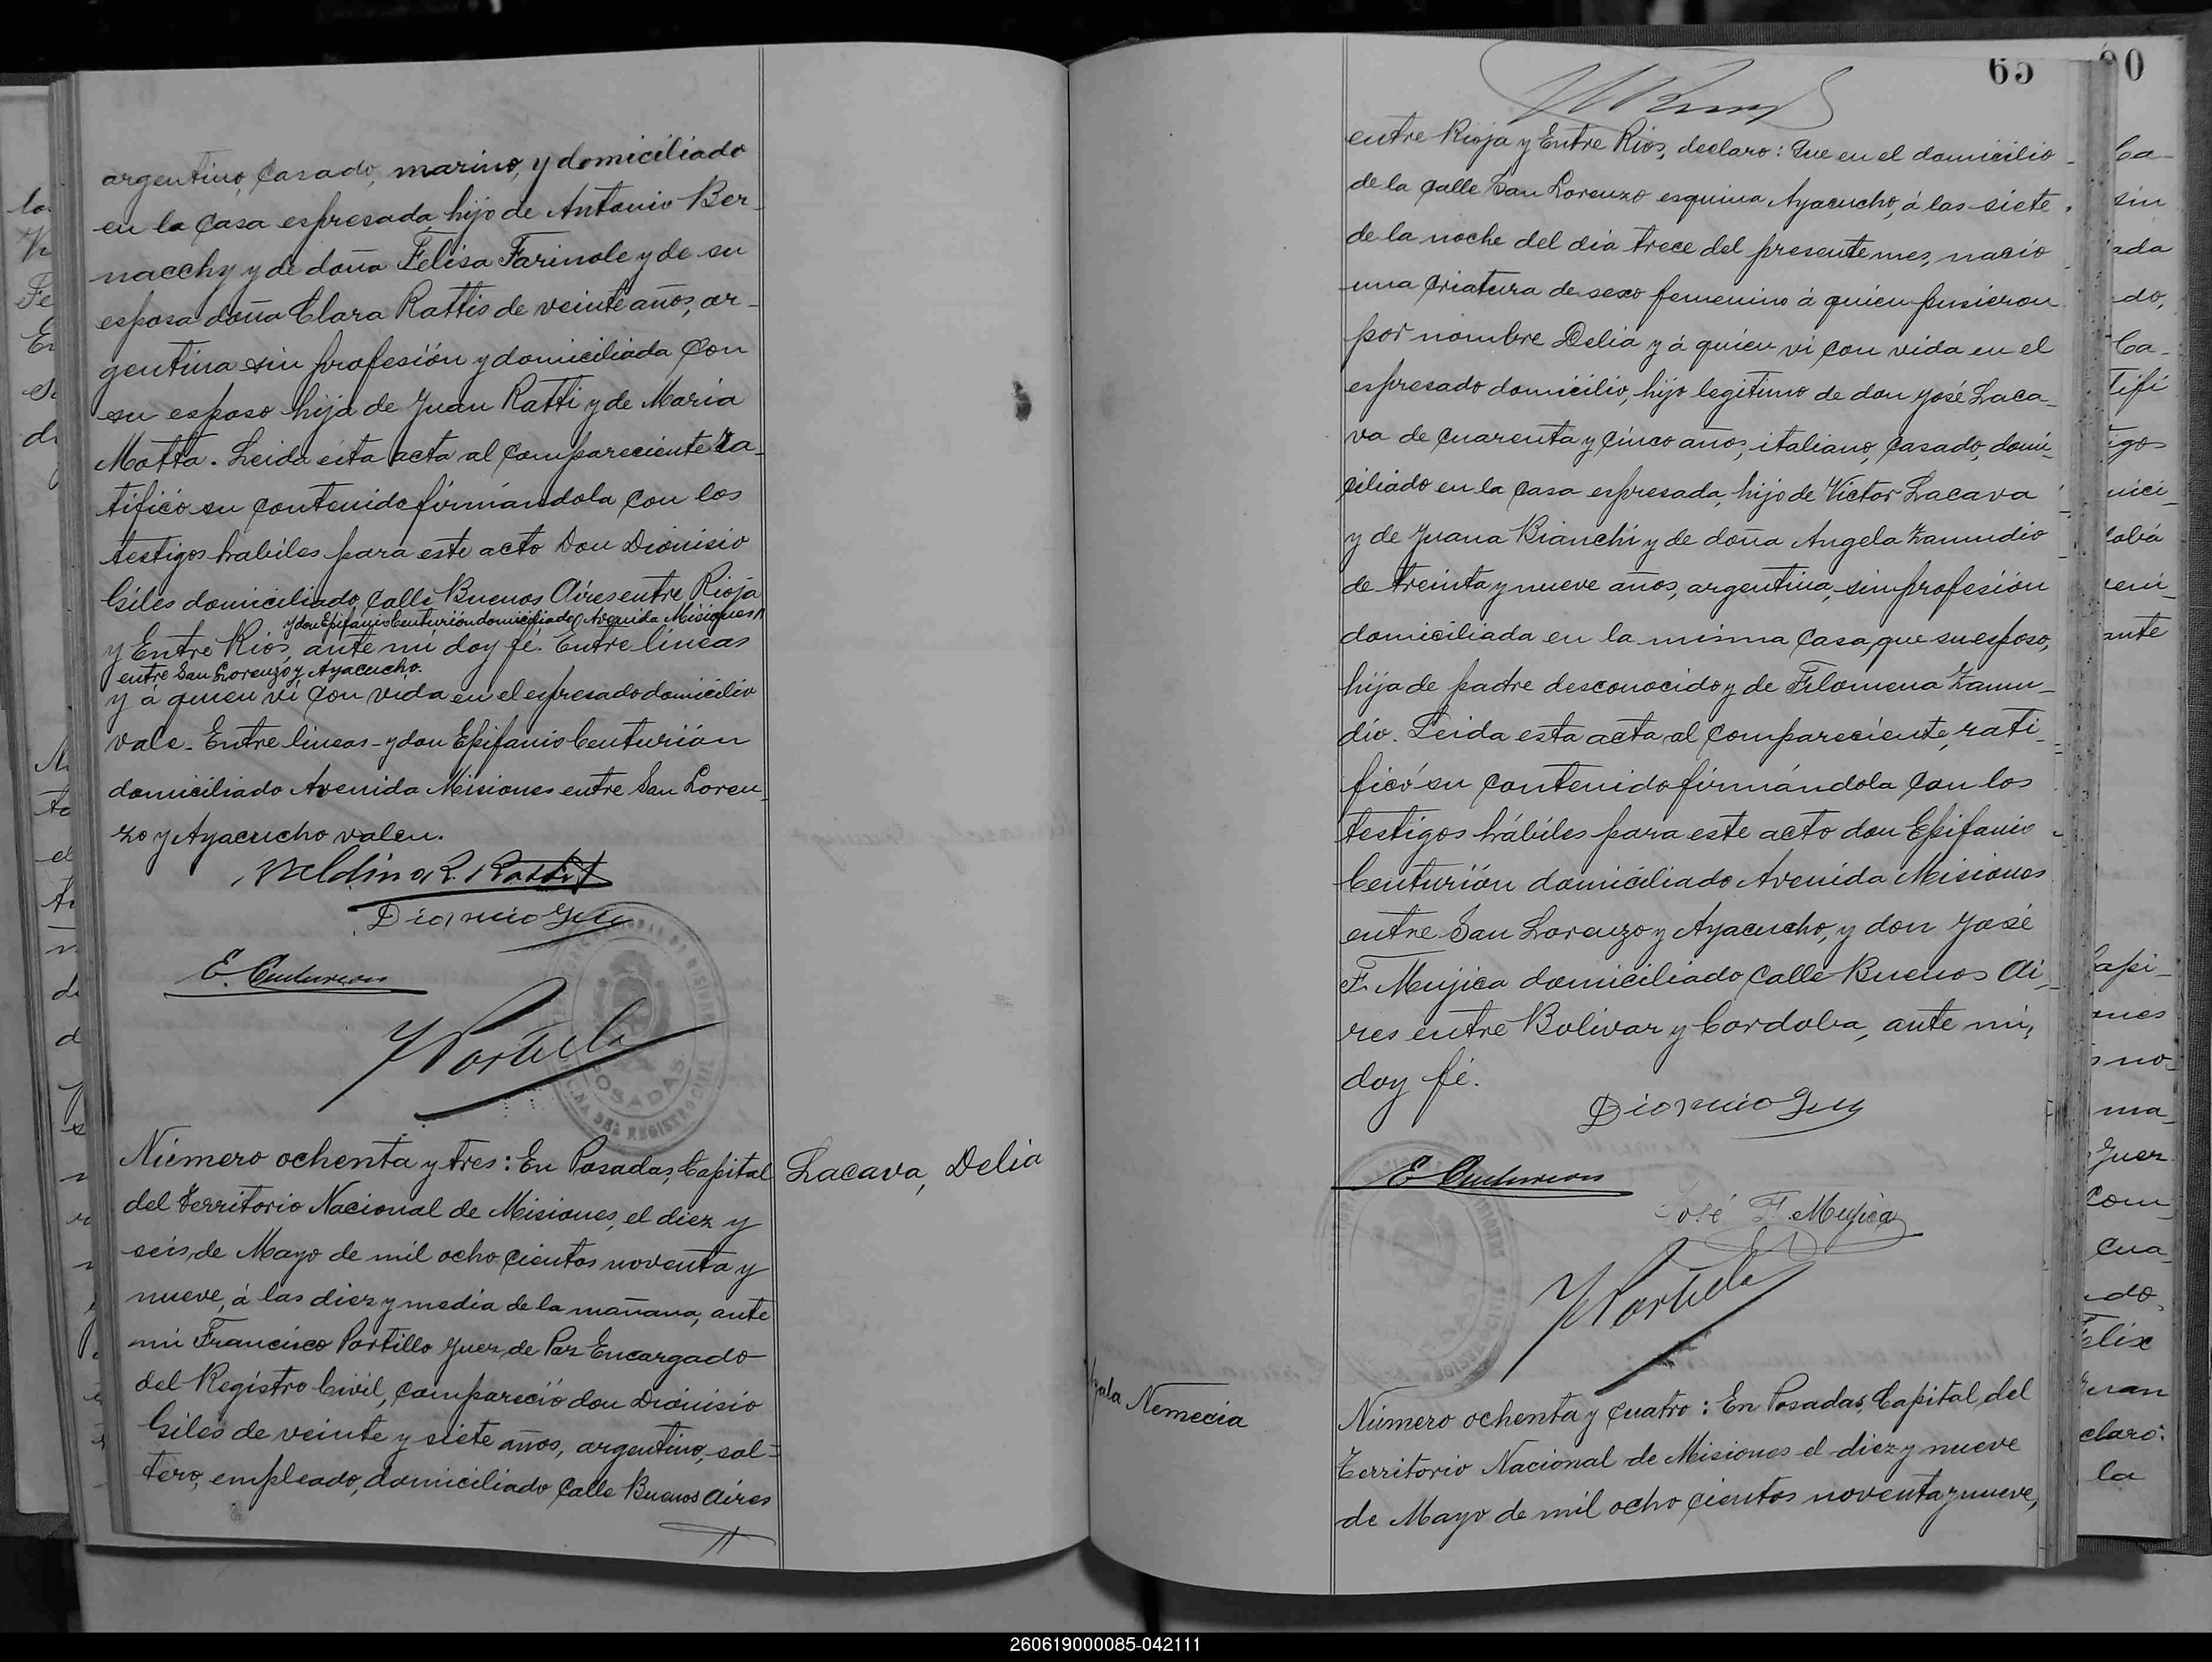 argentino, casado, marino, y domiciliado
en la casa espresada, hijo de Antonio Ber-
nacchy y de doña Felisa Farinole y de su
esposa doña Clara Rattis de veinte años, ar-
gentina sin profesión y domiciliada con
su esposo hija de Juan Ratti y de Maria
Motta. Leida esta acta al compareciente ra-
tificó su contenido firmándola con los
testigos habiles para este acto Don Dionisio
Giles domiciliado calle Buenos Aires entre Rioja
y don Epifanio Centurión domiciliado Avenida Misiones
y Entre Rios, ante mi doy fé. Entre líneas
entre San Lorenzo y Ayacucho.
y á quien vi con vida en el espresado domicilio
vale. Entre lineas - y don Epifanio Centurión
domiciliado Avenida Misiones entre San Loren-
zo y Ayacucho valen.
Dionisio
E. Centurion
POSADAS
Número ochenta y tres: En Posadas, Capital
Lacava, Delia
del Territorio Nacional de Misiones, el diez y
seis de Mayo de mil ocho cientos noventa y
nueve, á las diez y media de la mañana, ante
mi Francisco Portillo Juez de Paz Encargado
del Registro Civil, compareció don Dionisio
Giles de veinte y siete años, argentino, sol-
tero, empleado, domiciliado calle Buenos Aires
65
entre Rioja y Entre Rios, declaro: Que en el domicilio
de la calle San Lorenzo esquina Ayacucho, á las siete
de la noche del dia trece del presente mes, nacio
una criatura de sexo femenino á quien pusieron
por nombre Delia y á quien vi con vida en el
espresado domicilio, hijo legitimo de don José Laca-
va de cuarenta y cinco años, italiano, casado, domi-
ciliado en la casa espresada, hijo de Victor Lacava
y de Juana Bianchi y de doña Angela Zamudio
de treinta y nueve años, argentina, sin profesión
domiciliada en la misma casa, que su esposo,
hija de padre desconocido y de Filomena Zamu-
dio. Leida esta acta al compareciente, rati-
ficó su contenido firmándola con los
testigos hábiles para este acto don Epifanio
Centurión domiciliado Avenida Misiones
entre San Lorenzo y Ayacucho, y don José
F. Mujica domiciliado calle Buenos Ai-
res entre Bolivar y Cordoba, ante mi,
doy fé.
Dionisio
E. Centurion
José F. Mujica
Ayala Nemecia
Número ochenta y cuatro: En Posadas, Capital del
Territorio Nacional de Misiones el diez y nueve
de Mayo de mil ocho cientos noventa y nueve,
260619000085-042111